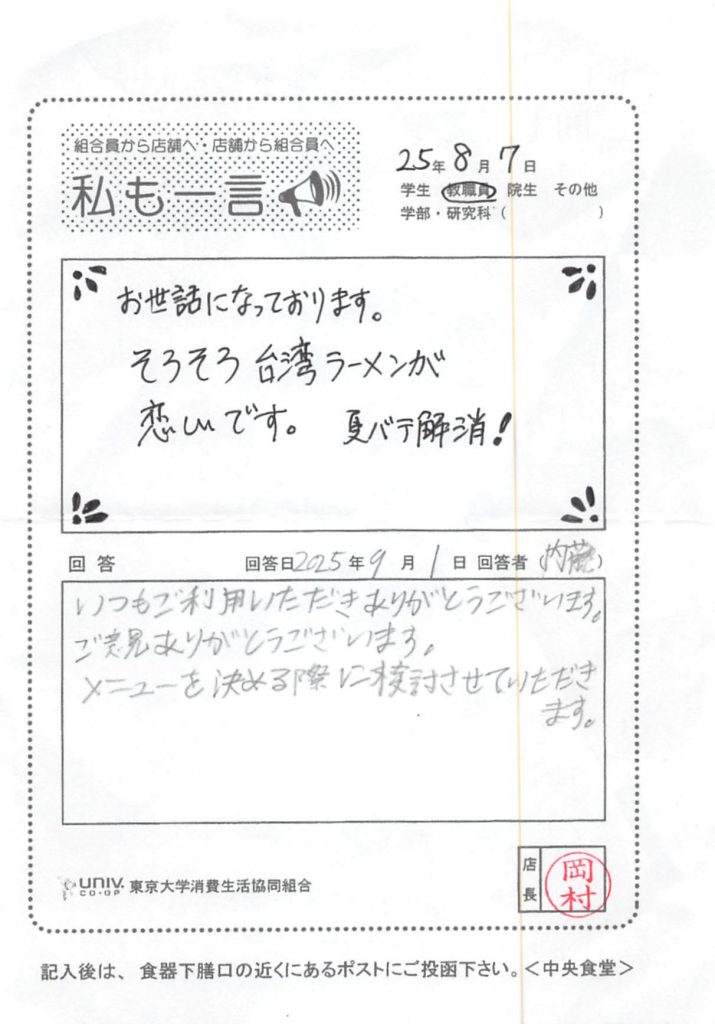 組合員から店舗へ・店舗から組合員へ
私も一言
25年8月7日
学生 教職員 院生 その他
学部・研究科( )
お世話になっております。
そろそろ台湾ラーメンが
恋しいです。 夏バテ解消!
回答 回答日2025年9月1日 回答者(内藤)
いつもご利用いただきありがとうございます。
ご意見ありがとうございます。
メニューを決める際に検討させていただき
ます。
UNIV. CO-OP 東京大学消費生活協同組合
店長 岡村
記入後は、食器下膳口の近くにあるポストにご投函下さい。<中央食堂>